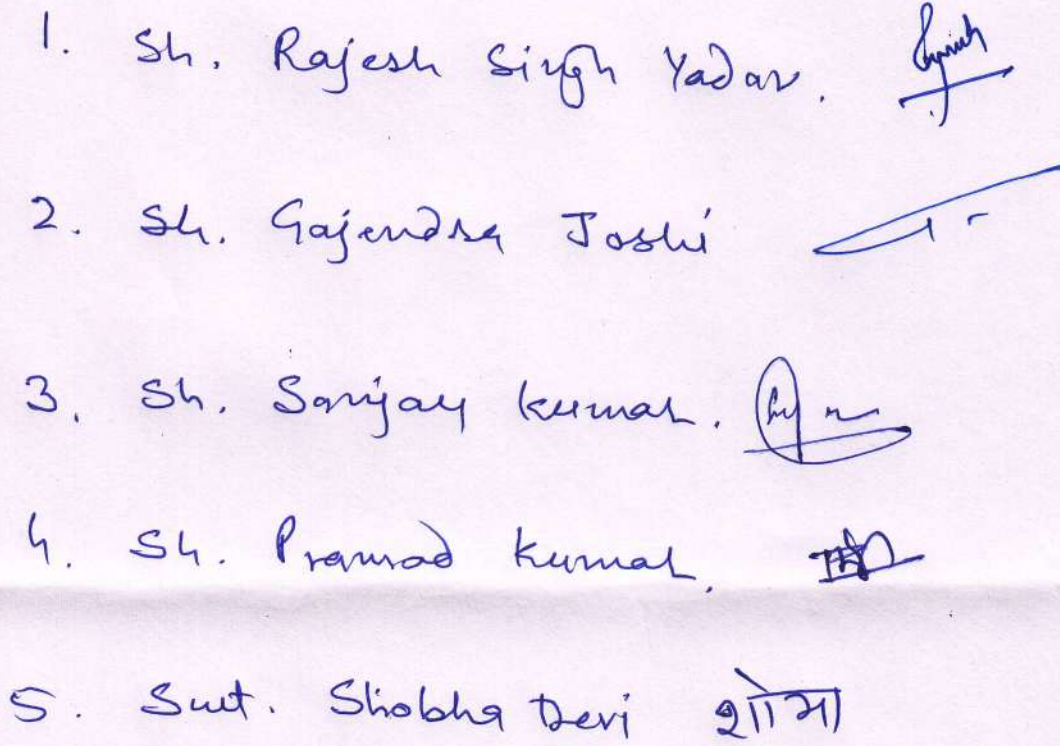 1. Sh. Rajesh Singh Yadav.
2. Sh. Gajendra Joshi
3. Sh. Sanjay Kumar.
4. Sh. Pramod Kumar.
5. Smt. Shobha Devi शोभा